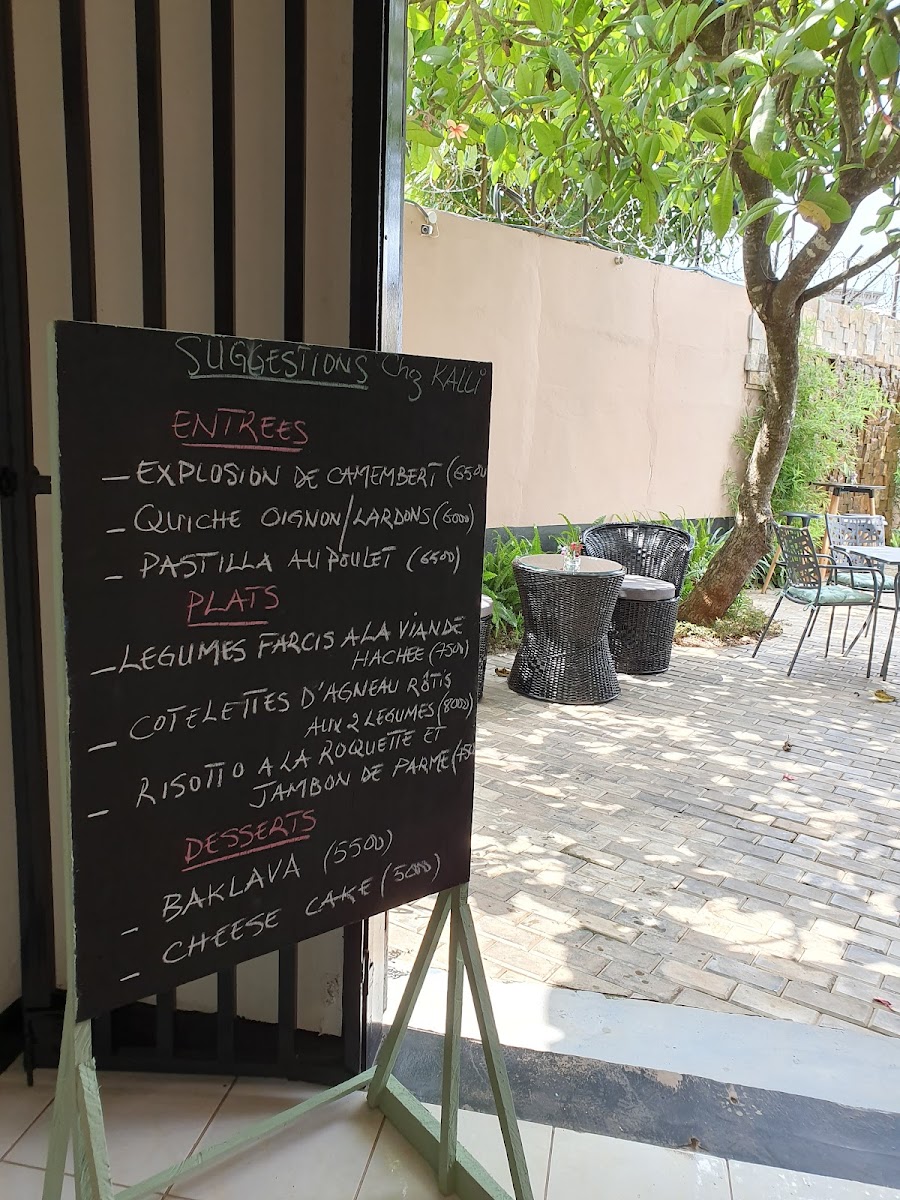 SUGGESTIONS Chz KALLi
ENTREES
- EXPLOSION DE CAMEMBERT (6500
- QUICHE OIGNON/LARDONS (6000)
- PASTILLA AU POULET (6500)
PLATS
- LEGUMES FARCIS A LA VIANDE
HACHEE (7500)
- COTELETTES D'AGNEAU RÔTIS
AUX 2 LEGUMES (8000)
- RISOTTO A LA ROQUETTE ET
JAMBON DE PARME
DESSERTS
- BAKLAVA (5500)
- CHEESE CAKE (5000)